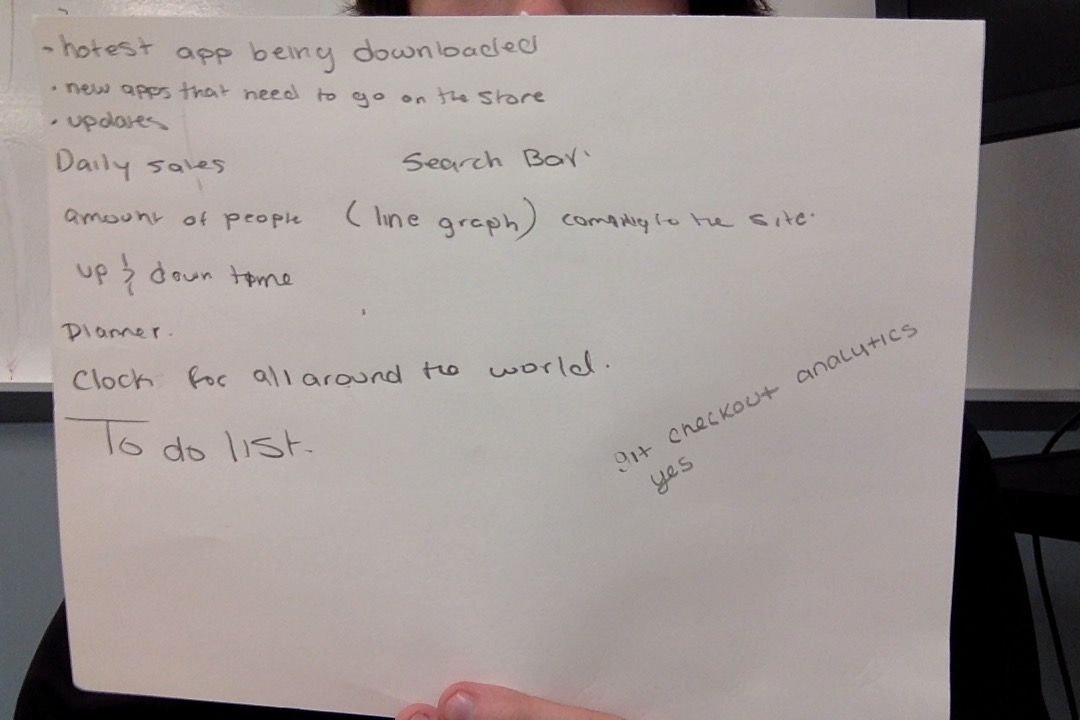 - hotest app being downloaded
• new apps that need to go on the store
• updates
Daily sales
Search Bar
amount of people (line graph) coming to the site.
up & down time
Planner.
Clock for all around the world.
To do list.
git checkout analytics
yes